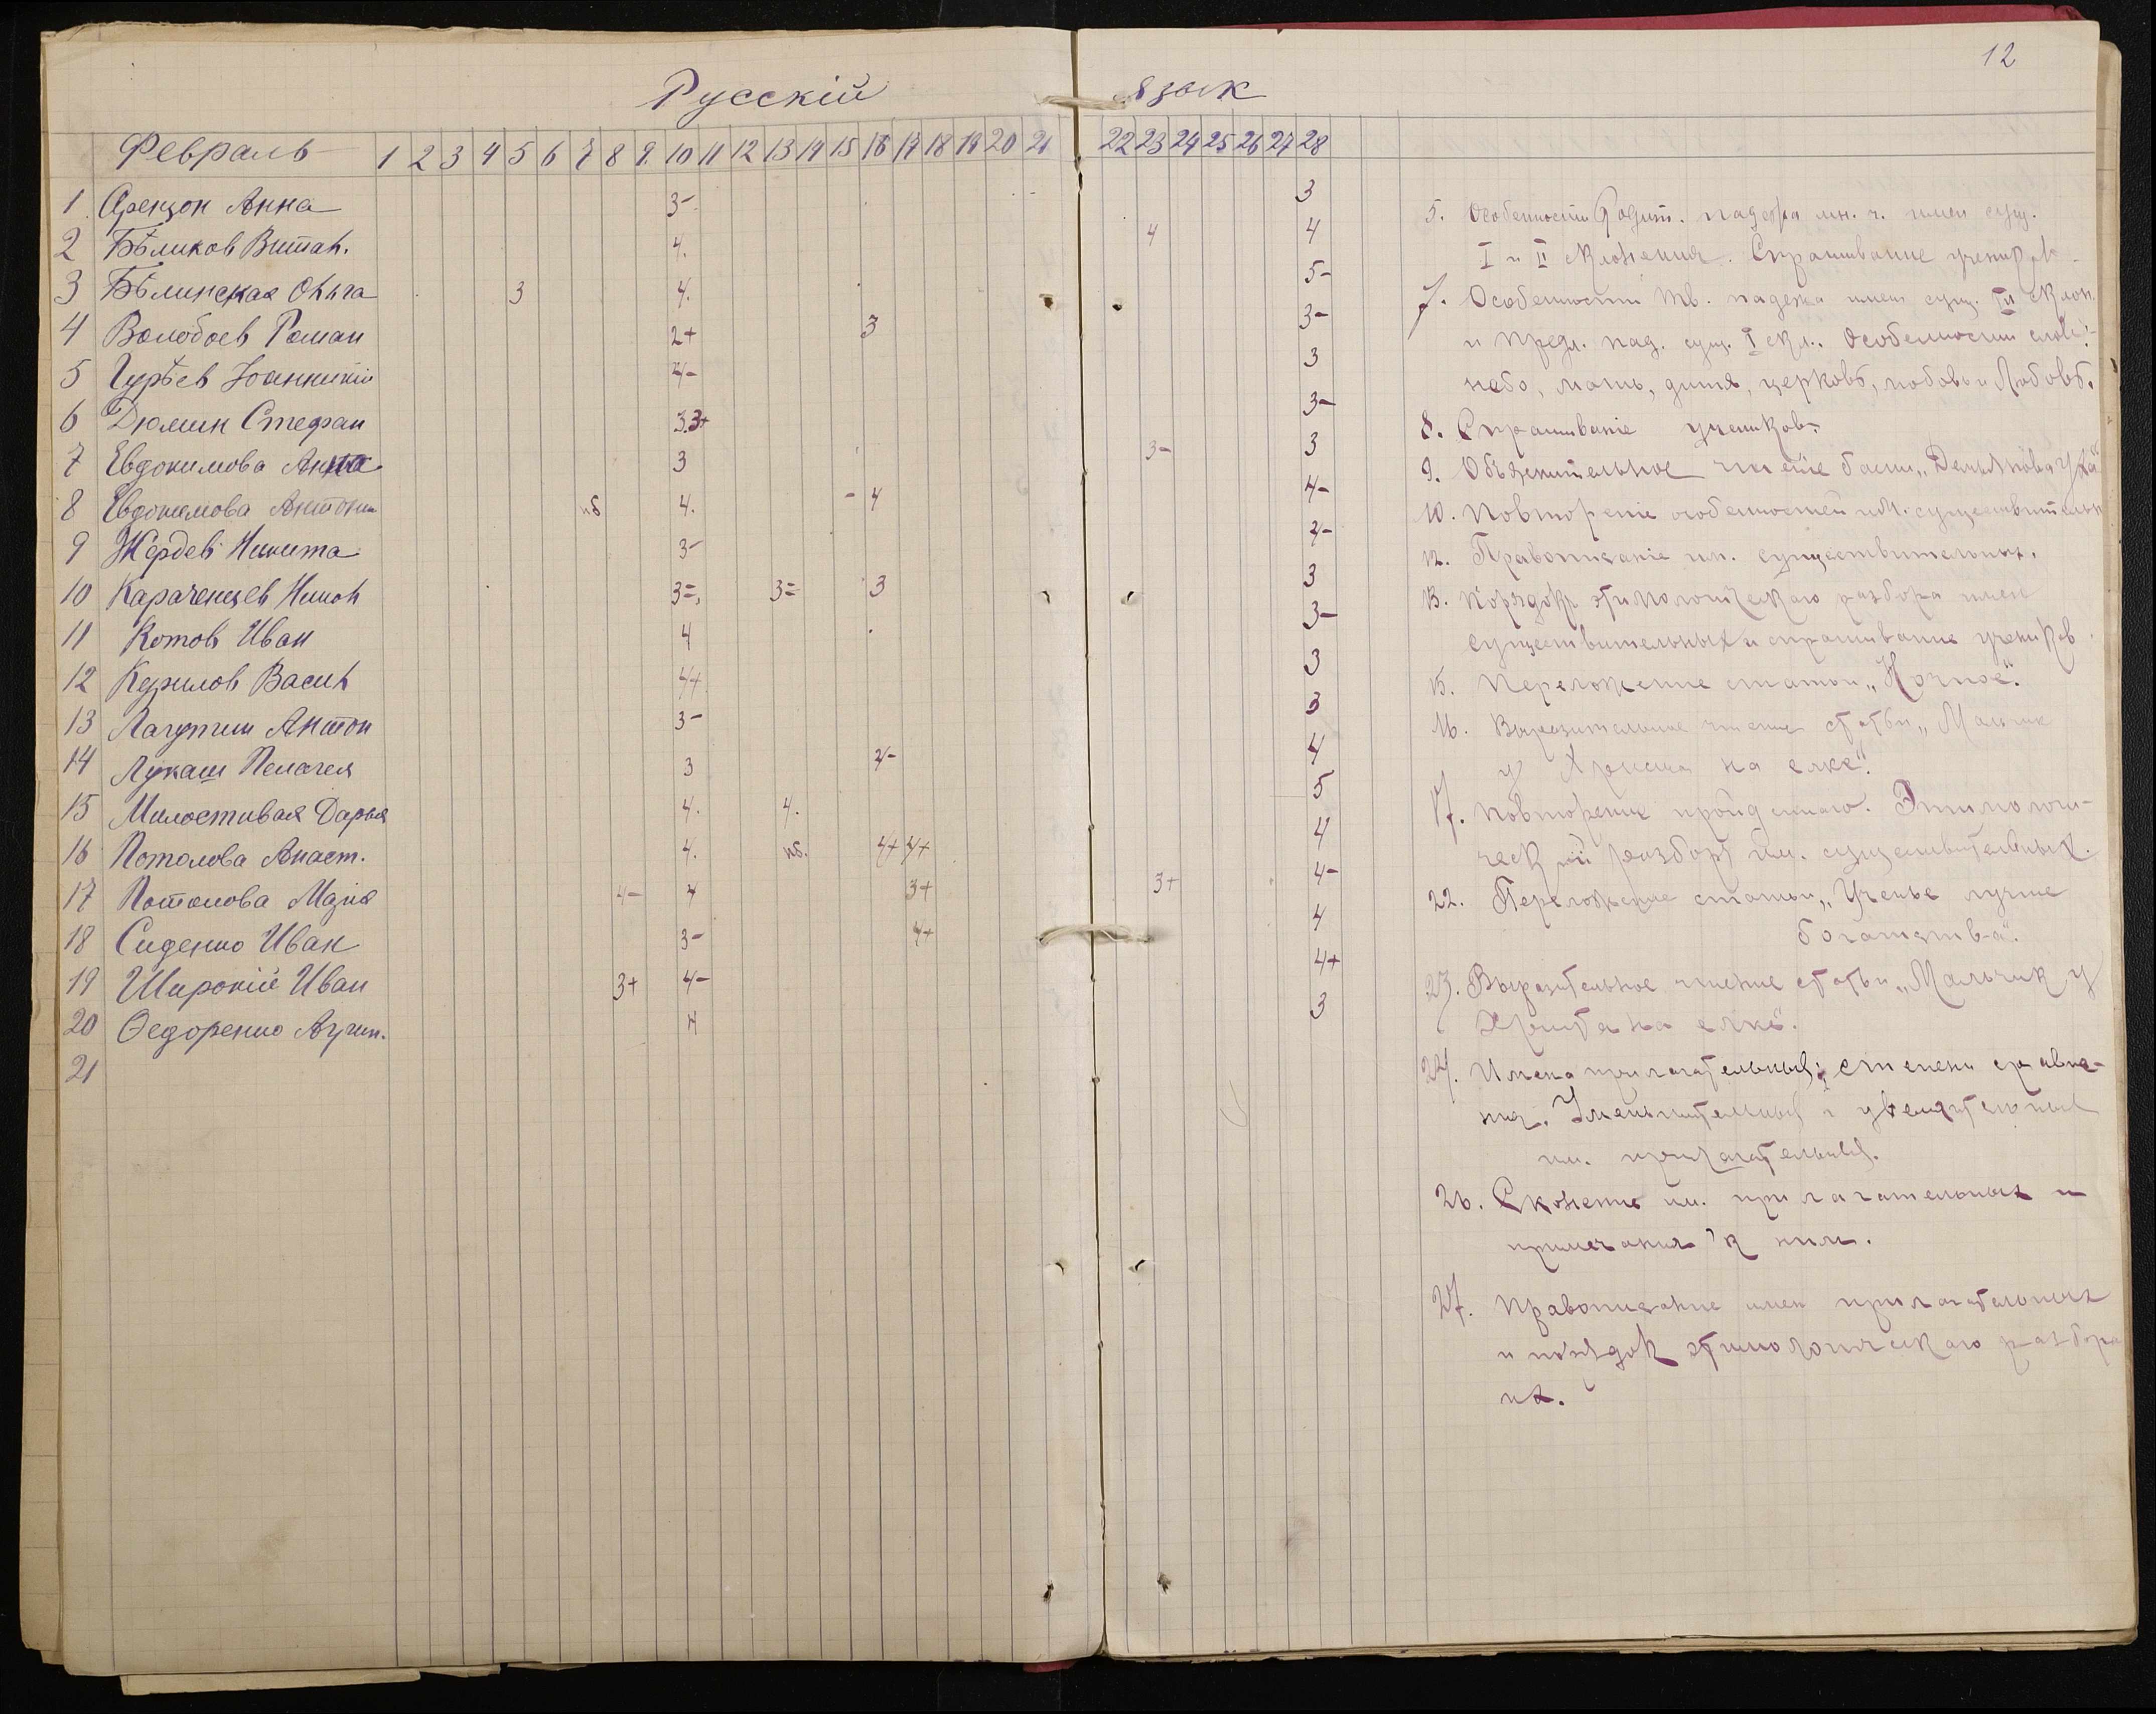 12
Русскій язык
Февраль 1 2 3 4 5 6 7 8 9. 10 11 12 13 14 15 16 17 18 19 20 21 22 23 24 25 26 27 28
1 Аренцон Анна 3- 3
2 Бѣликов Витал. 4. 4 4
3 Бѣлинская Ольга 3 4. 5-
4 Волобоев Роман 2+ 3 3-
5 Гурѣев Іоанникій 4- 3
6 Дюмин Стефан 3.3+ 3-
7 Евдокимова Анна 3 3- 3
8 Евдокимова Антони нб 4. - 4 4-
9 Жердев Никита 3- 4-
10 Караченцев Никол 3=, 3= 3 3
11 Котов Иван 4 3-
12 Курилов Васил 4+ 3
13 Лагутин Антон 3- 3
14 Лукаш Пелагея 3 4- 4
15 Милостивая Дарья 4. 4. 5
16 Потолова Анаст. 4. нб. 4+ 4+ 4
17 Потолова Марія 4- 4 3+ 3+ 4-
18 Сиденко Иван 3- 4+ 4
19 Широкій Иван 3+ 4- 4+
20 Ѳедоренко 4 3
21
5. Особенности Родит. падежа мн. ч. имен сущ.
I и II склонения. Спрашивание учеников.
7. Особенности тв. падежа имен сущ. III склон.
и предл. пад. сущ. I скл.. Особенности слов:
небо, мать, дитя, церковь, любовь и Любовь.
8. Спрашиваніе учеников.
9. Объяснительное чтеніе басни „Демьянова уха"
10. Повтореніе особенностей им. существительн
12. Правописаніе им. существительных.
13. Порядок этимологическаго разбора имен
существительных и спрашивание учеников.
15. Переложение статьи „Ночное".
16. Выразительное чтение статьи „Мальчик
у Христа на елке".
17. Повторение пройденнаго. Этимологи-
ческій разбор им. существительных.
22. Переложение статьи „Ученье лучше
богатства".
23. Выразительное чтение статьи „Мальчик у
Христа на елке".
24. Имена прилагательныя; степени сравне-
ния. Уменьшительныя и увеличительныя
им. прилагательныя.
26. Склонение им. прилагательных и
примечания к ним.
27. Правописание имен прилагательных
и порядок этимологическаго разбора
их.